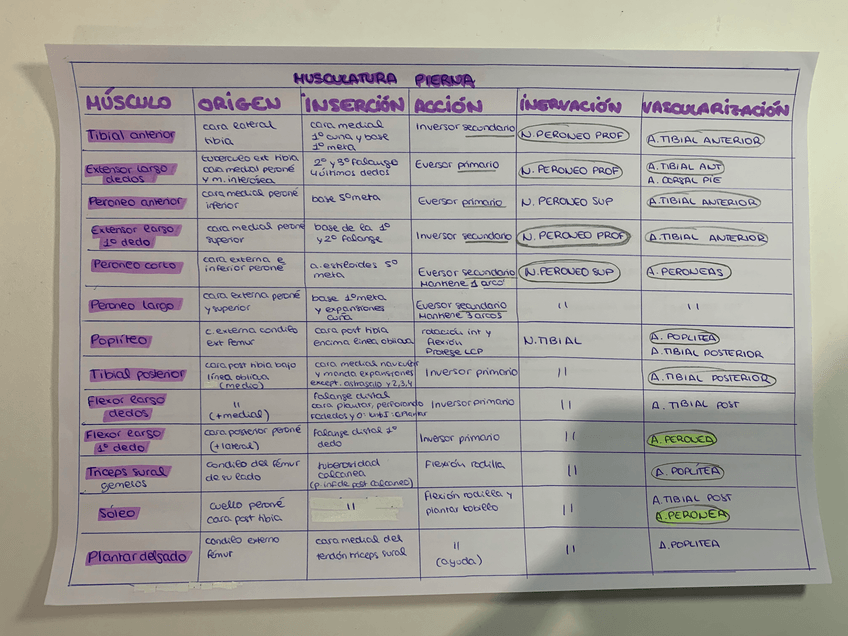 MUSCULATURA PIERNA
MÚSCULO ORIGEN INSERCIÓN ACCIÓN INERVACIÓN VASCULARIZACIÓN
Tibial anterior
cara lateral
tibia
cara medial
1º cuña y base
1º meta
Inversor secundario
N. PERONEO PROF
A. TIBIAL ANTERIOR
Extensor largo
dedos
tuberculo ext tibia
cara medial peroné
y m. interósea
2º y 3º falange
4 últimos dedos
Eversor primario
N. PERONEO PROF
A. TIBIAL ANT
A. DORSAL PIE
Peroneo anterior
cara medial peroné
inferior
base 5º meta
Eversor primario
N. PERONEO SUP
A. TIBIAL ANTERIOR
Extensor largo
1º dedo
cara medial peroné
superior
base de la 1º
y 2º falange
Inversor secundario
N. PERONEO PROF
A. TIBIAL ANTERIOR
Peroneo corto
cara externa e
inferior peroné
a. estiloides 5º
meta
Eversor secundario
Mantiene 1 arco
N. PERONEO SUP
A. PERONEAS
Peroneo largo
cara externa peroné
y superior
base 1º meta
y expansiones
cuña
Eversor secundario
Mantiene 3 arcos
"
"
Poplíteo
c. externa condilo
ext femur
cara post tibia
encima linea oblicua
rotación int y
flexión
Protege LCP
N. TIBIAL
A. POPLITEA
A. TIBIAL POSTERIOR
Tibial posterior
cara post tibia bajo
línea oblicua
(medio)
cara medial navicular
y manda expansiones
except. astragalo y 2,3,4
Inversor primario
"
A. TIBIAL POSTERIOR
Flexor largo
dedos
"
(+medial)
falange distal
cara plantar, perforando
Inversor primario
"
A. TIBIAL POST
Flexor largo
1º dedo
cara posterior peroné
(+lateral)
falange distal 1º
dedo
Inversor primario
"
A. PERONEA
Triceps sural
gemelos
condilo del fémur
de su lado
tuberosidad
calcanea
(p. inf de post calcaneo)
Flexión rodilla
"
A. POPLÍTEA
Sóleo
cuello peroné
cara post tibia
"
Flexión rodilla y
plantar tobillo
"
A. TIBIAL POST
A. PERONEA
Plantar delgado
condilo externo
fémur
cara medial del
tendón triceps sural
"
(ayuda)
"
A. POPLITEA